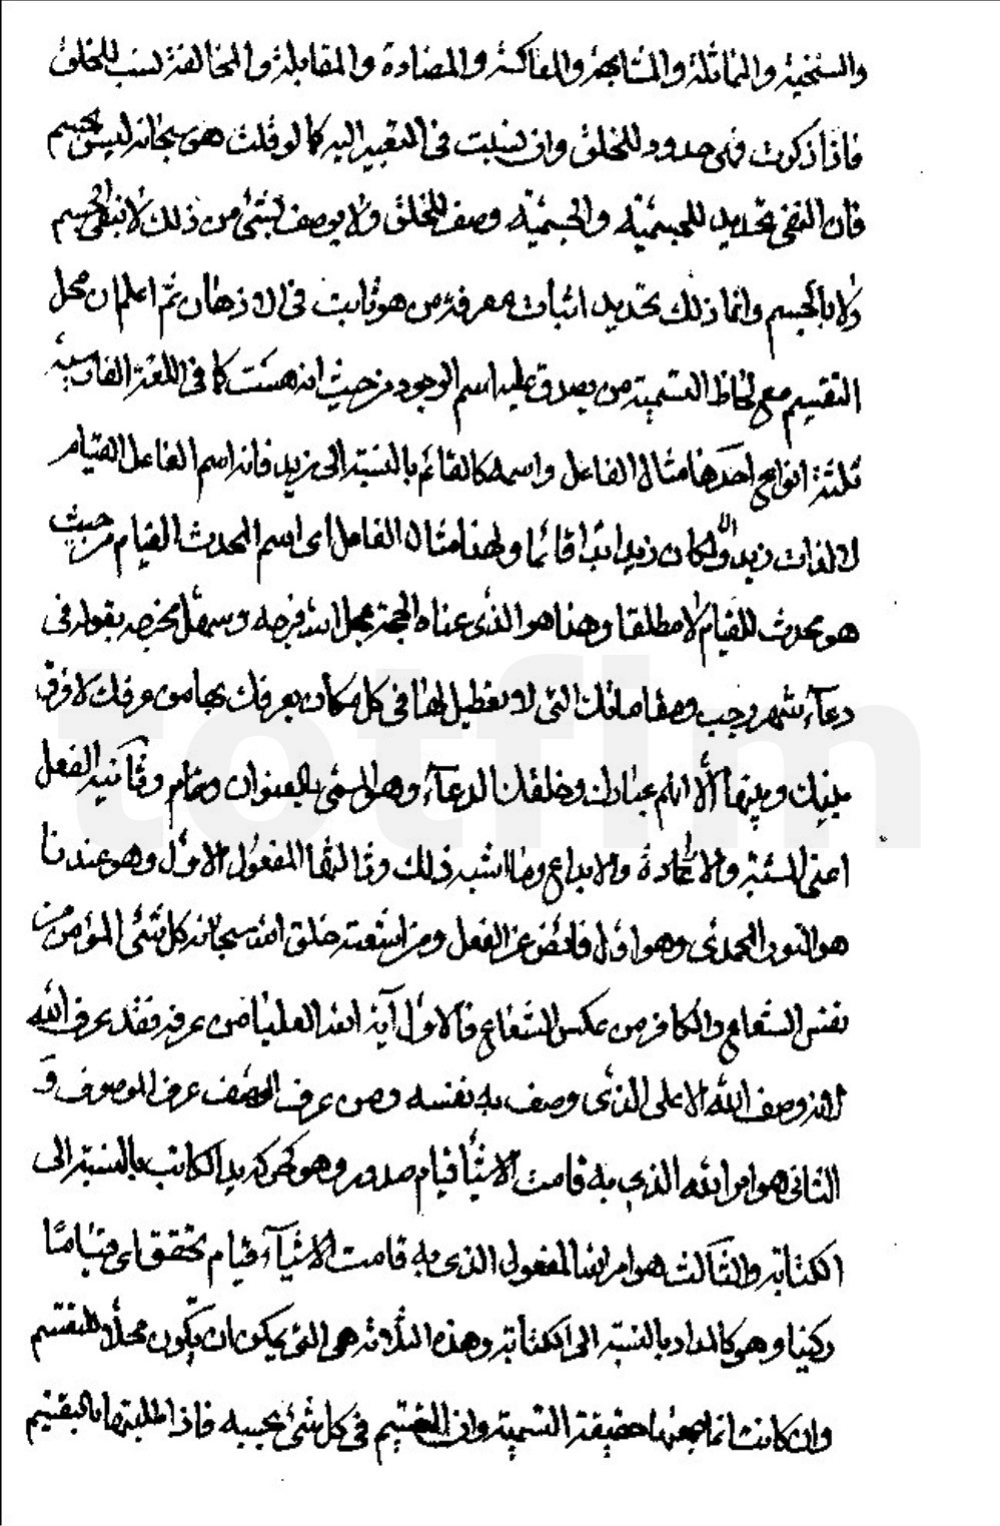 والسنخية والمماثلة والمشابهة والمعاكسة والمضادة والمقابلة والمخالفة نسب للخلق
فاذا ذكرت فهى حدود للخلق وان نسبت فى التعبير اليه كما لو قلت هو سبحانه ليس بجسم
فان النفى تحديد للجسمية والجسمية وصف للخلق ولا يوصف بشئ من ذلك لا بنفى الجسم
ولا بالجسم وانما ذلك تحديد اثبات معرفة من هو ثابت فى الاذهان ثم اعلم ان محل
التقسيم مع لحاظ التسمية من يصدق عليه اسم الوجود من حيث انه هست كما فى اللغة الفارسية
ثلثة انواع احدها مثال الفاعل واسمه كالقائم بالنسبة الى زيد فانه اسم الفاعل القيام
لا لذات زيد والا لكان زيد ابدا قائما وهذا مثال الفاعل اى اسم المحدث القيام من حيث
هو محدث للقيام لا مطلقا وهذا هو الذى عناه الحجة عجل الله فرجه وسهل مخرجه بقوله فى
دعآء شهر رجب ومقاماتك التى لا تعطيل لها فى كل مكان يعرفك بها من عرفك لا فرق
بينك وبينها الا انهم عبادك وخلقك الدعآء وهو المسمى بالعنوان ومقام وثانيه الفعل
اعنى المشية والارادة والابداع وما اشبه ذلك وثالثها المفعول الاول وهو عندنا
هو النور المحمدى وهو اول فائض عن الفعل ومن اشعته خلق الله سبحانه كل شئ المؤمن من
نفس الشعاع والكافر من عكس الشعاع فالاول آية الله العليا من عرفه فقد عرف الله
لانه وصف الله الاعلى الذى وصف به نفسه ومن عرف الوصف عرف الموصوف و
الثانى هو امر الله الذى به قامت الاشيآء قيام صدور وهو كحركة يد الكاتب بالنسبة الى
الكتابة والثالث هو امر الله المفعولى الذى به قامت الاشيآء قيام تحقق اى قياما
ركنيا وهو كالمداد بالنسبة الى الكتابة وهذه الثلاثة هى التى يمكن ان يكون محلا للتقسيم
وان كانت انما حقيقة التسمية وان التقسيم فى كل شئ بحسبه فاذا طلبتها بالتقسيم